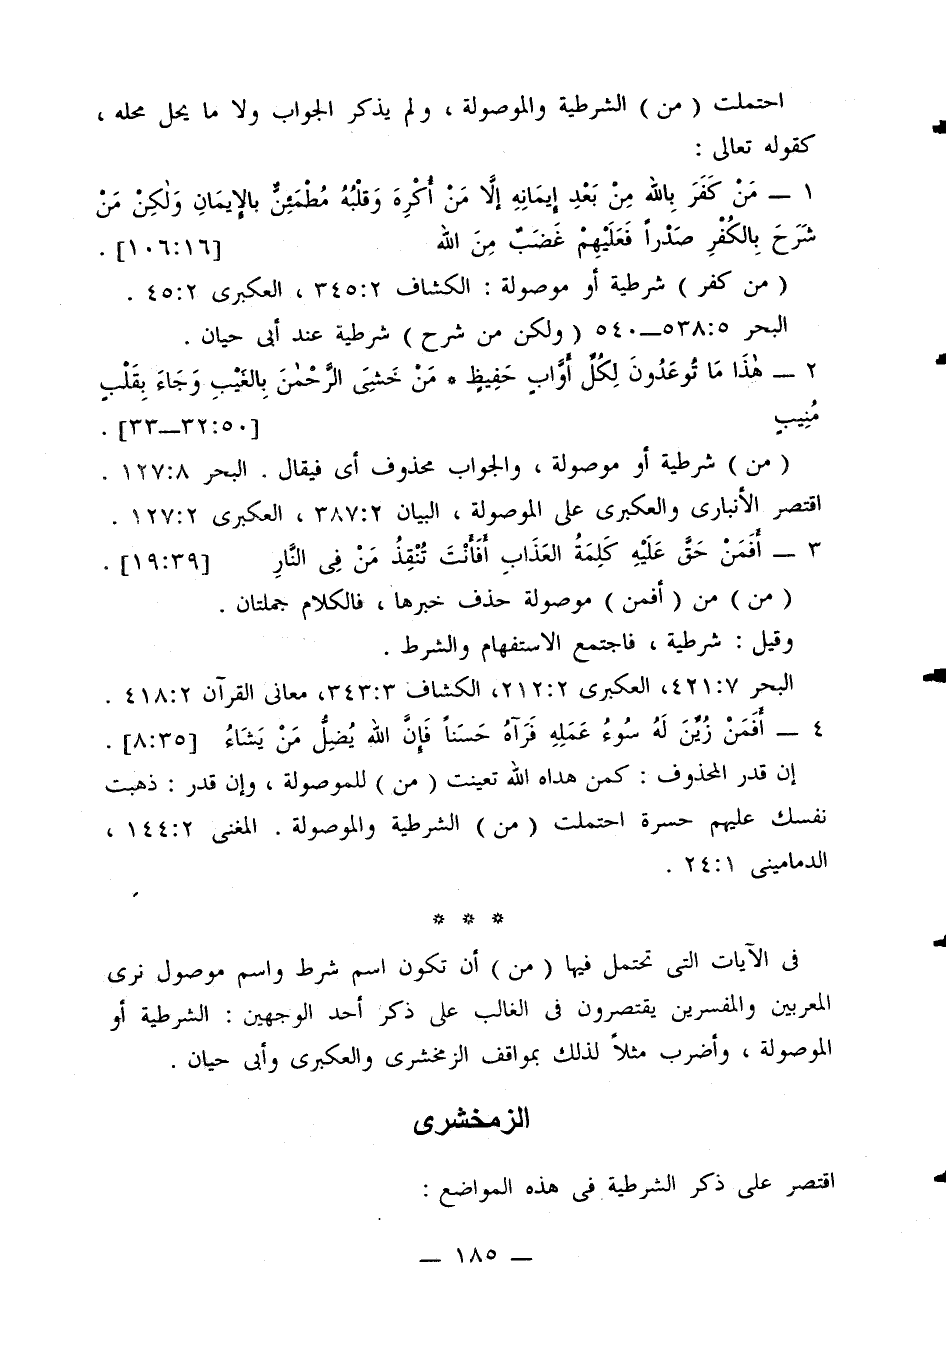 احتملت ( من ) الشرطية والموصولة ، ولم يذكر الجواب ولا ما يحل محله ،
كقوله تعالى :
١ ــ مَنْ كَفَرَ بِالله مِنْ بَعْدِ إِيمَانِهِ إلَّا مَنْ أُكْرِهَ وَقَلْبُهُ مُطْمَئِنٌّ بالإِيمَانِ وَلٰكِنْ مَنْ
شَرَحَ بِالكُفْرِ صَدْراً فَعَلَيْهِمْ غَضَبٌ مِنَ الله [١٠٦:١٦] .
( من كفر ) شرطية أو موصولة : الكشاف ٣٤٥:٢ ، العكبرى ٤٥:٢ .
البحر ٥٣٨:٥ــ٥٤٠ ( ولكن من شرح ) شرطية عند أبى حيان .
٢ ــ هٰذَا مَا تُوعَدُونَ لِكُلِّ أَوَّابٍ حَفِيظٍ * مَنْ خَشِىَ الرَّحْمٰنَ بِالغَيْبِ وَجَاءَ بِقَلْبٍ
مُنِيبٍ [٣٢:٥٠ــ٣٣] .
( من ) شرطية أو موصولة ، والجواب محذوف أى فيقال . البحر ١٢٧:٨ .
اقتصر الأنبارى والعكبرى على الموصولة ، البيان ٣٨٧:٢ ، العكبرى ١٢٧:٢ .
٣ ــ أَفَمَنْ حَقَّ عَلَيْهِ كَلِمَةُ العَذَابِ أَفَأَنْتَ تُنْقِذُ مَنْ فِى النَّارِ [١٩:٣٩] .
( من ) من ( أفمن ) موصولة حذف خبرها ، فالكلام جملتان .
وقيل : شرطية ، فاجتمع الاستفهام والشرط .
البحر ٤٢١:٧، العكبرى ٢١٢:٢، الكشاف ٣٤٣:٣، معانى القرآن ٤١٨:٢ .
٤ ــ أَفَمَنْ زُيِّنَ لَهُ سُوءُ عَمَلِهِ فَرَآهُ حَسَناً فَإِنَّ الله يُضِلُّ مَنْ يَشَاءُ [٨:٣٥] .
إن قدر المحذوف : كمن هداه الله تعينت ( من ) للموصولة ، وإن قدر : ذهبت
نفسك عليهم حسرة احتملت ( من ) الشرطية والموصولة . المغنى ١٤٤:٢ ،
الدمامينى ٢٤:١ .
* * *
فى الآيات التى تحتمل فيها ( من ) أن تكون اسم شرط واسم موصول نرى
المعربين والمفسرين يقتصرون فى الغالب على ذكر أحد الوجهين : الشرطية أو
الموصولة ، وأضرب مثلاً لذلك بمواقف الزمخشرى والعكبرى وأبى حيان .
الزمخشرى
اقتصر على ذكر الشرطية فى هذه المواضع :
ــ ١٨٥ ــ